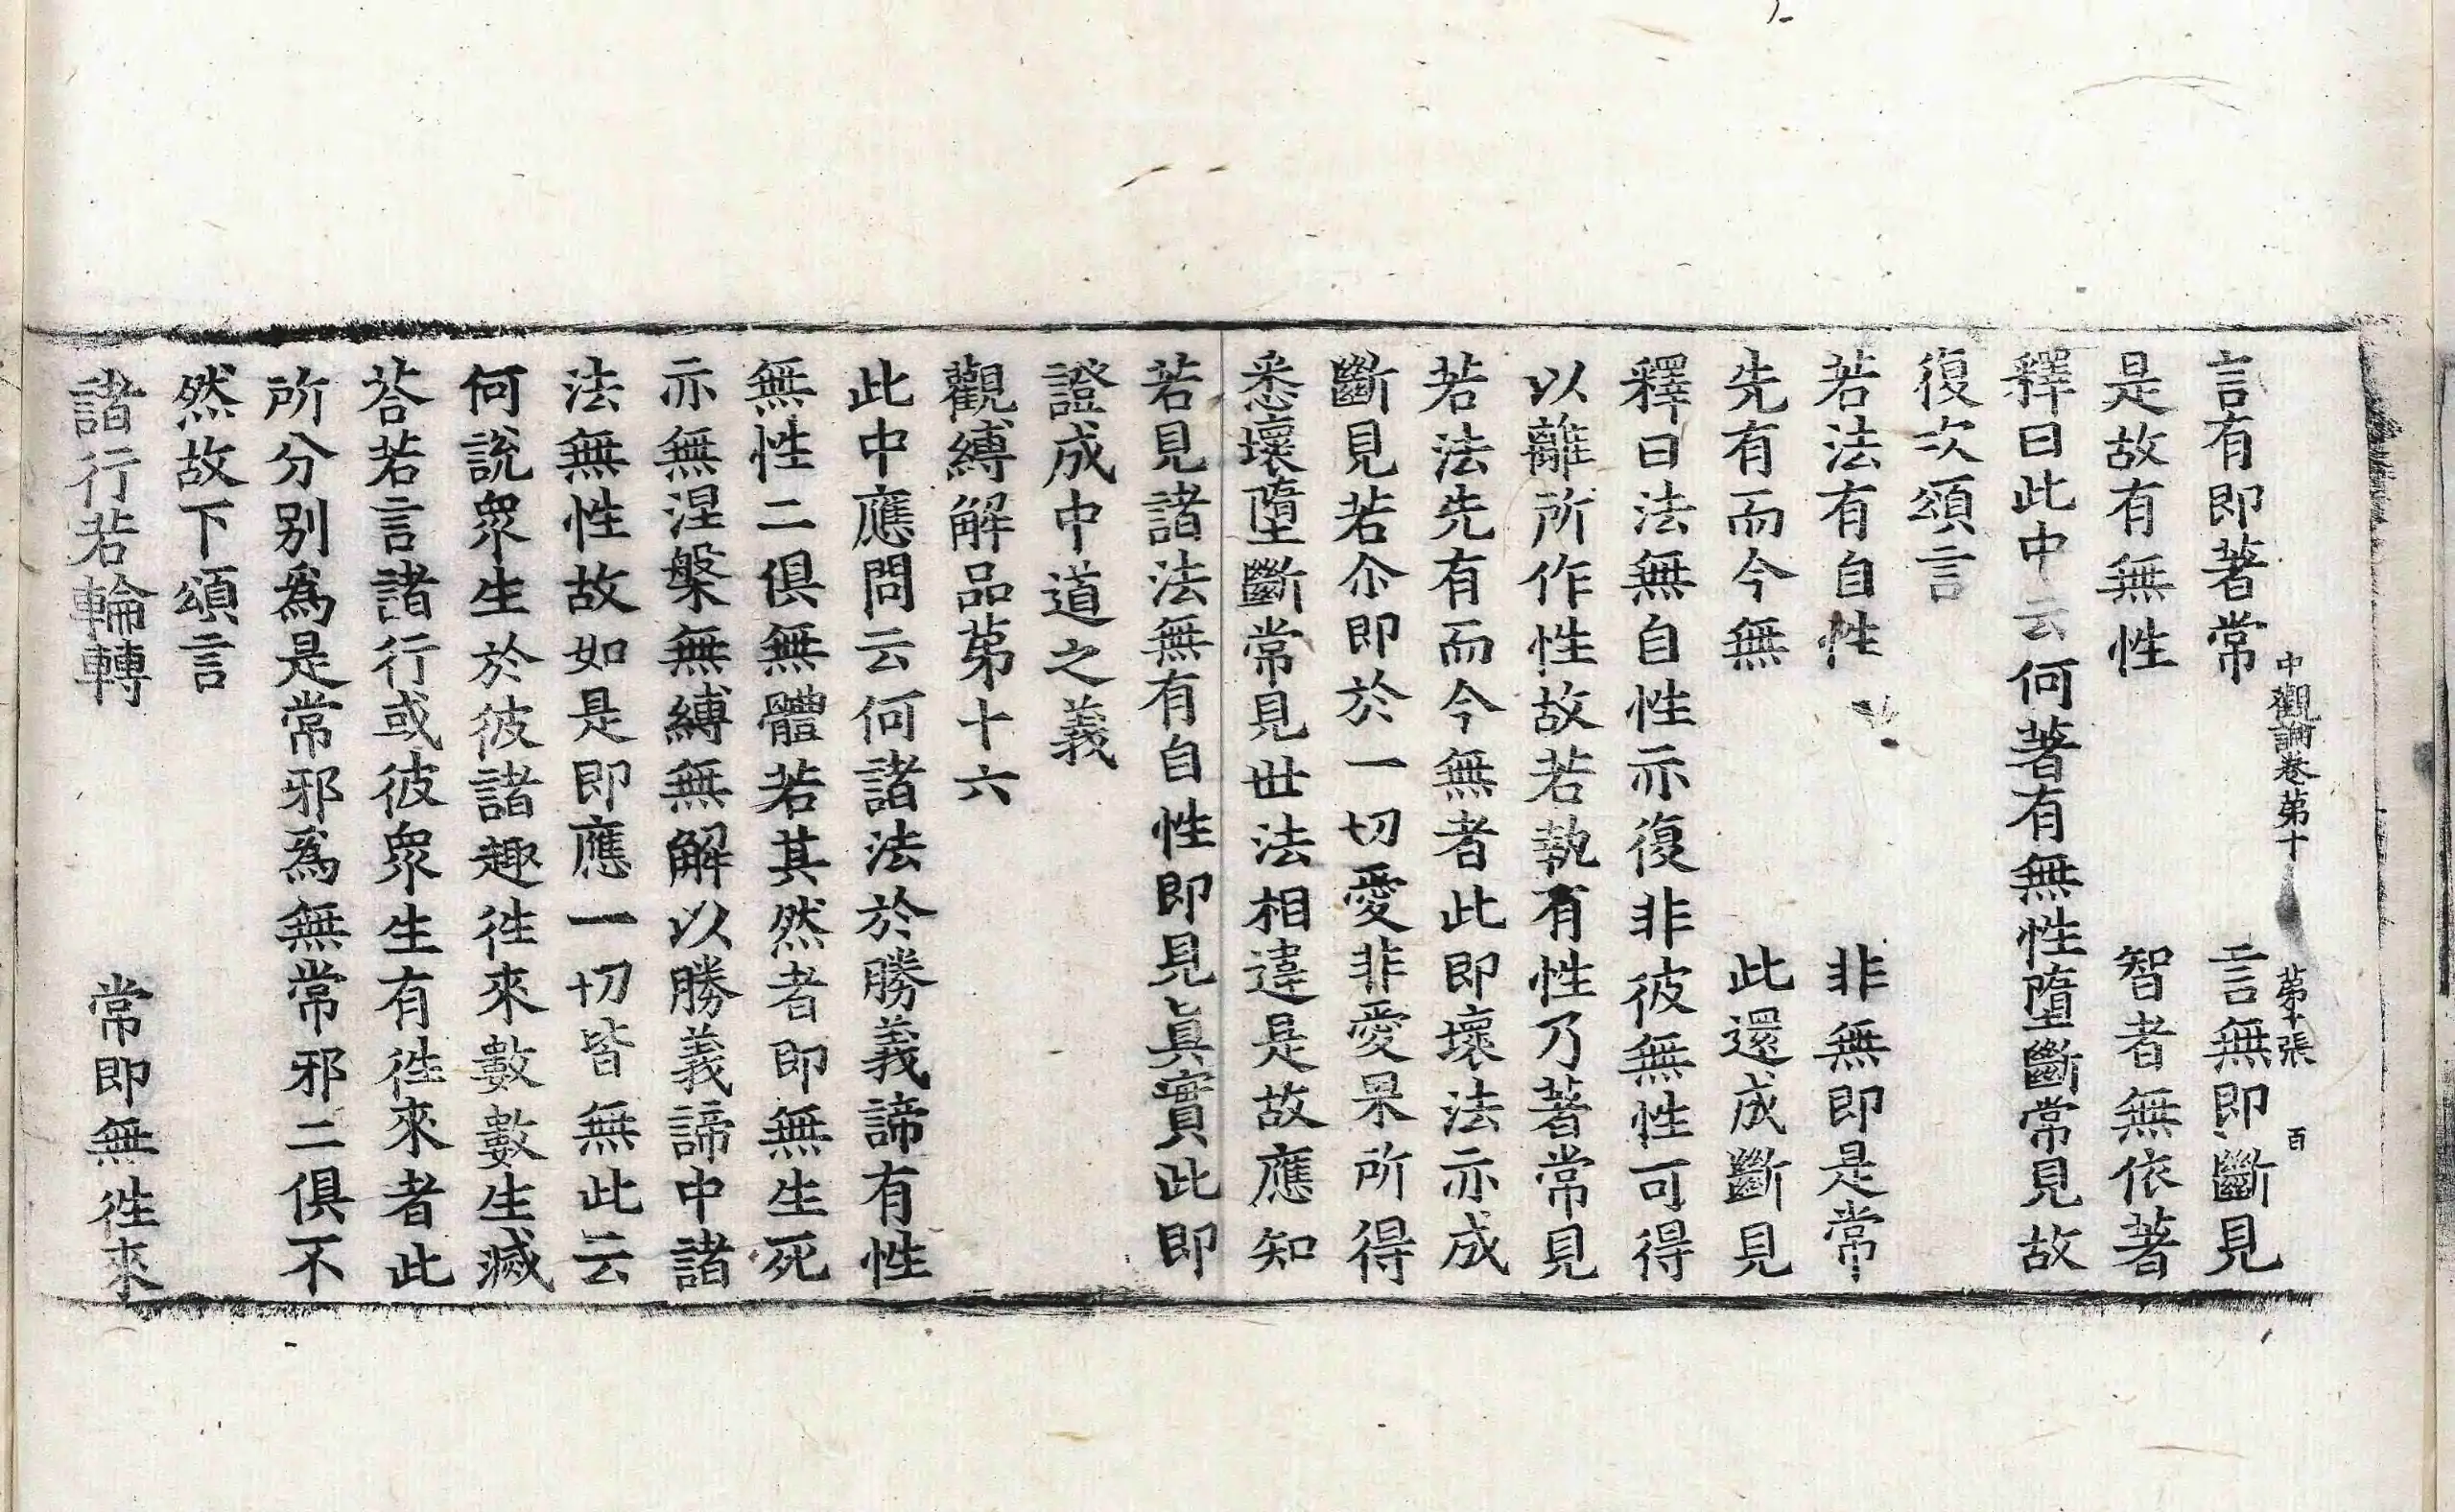 中觀論卷第十 第十張 百
言有即著常 言無即斷見
是故有無性 智者無依著
釋曰此中云何著有無性墮斷常見故
復次頌言
若法有自性 非無即是常
先有而今無 此還成斷見
釋曰法無自性亦復非彼無性可得
以離所作性故若執有性乃著常見
若法先有而今無者此即壞法亦成
斷見若尒即於一切愛非愛果所得
悉壞墮斷常見世法相違是故應知
若見諸法無有自性即見眞實此即
證成中道之義
觀縛解品苐十六
此中應問云何諸法於勝義諦有性
無性二俱無體若其然者即無生死
亦無涅槃無縛無解以勝義諦中諸
法無性故如是即應一切皆無此云
何說衆生於彼諸趣徃來數數生滅
荅若言諸行或彼衆生有徃來者此
所分別爲是常邪爲無常邪二俱不
然故下頌言
諸行若輪轉 常即無徃來